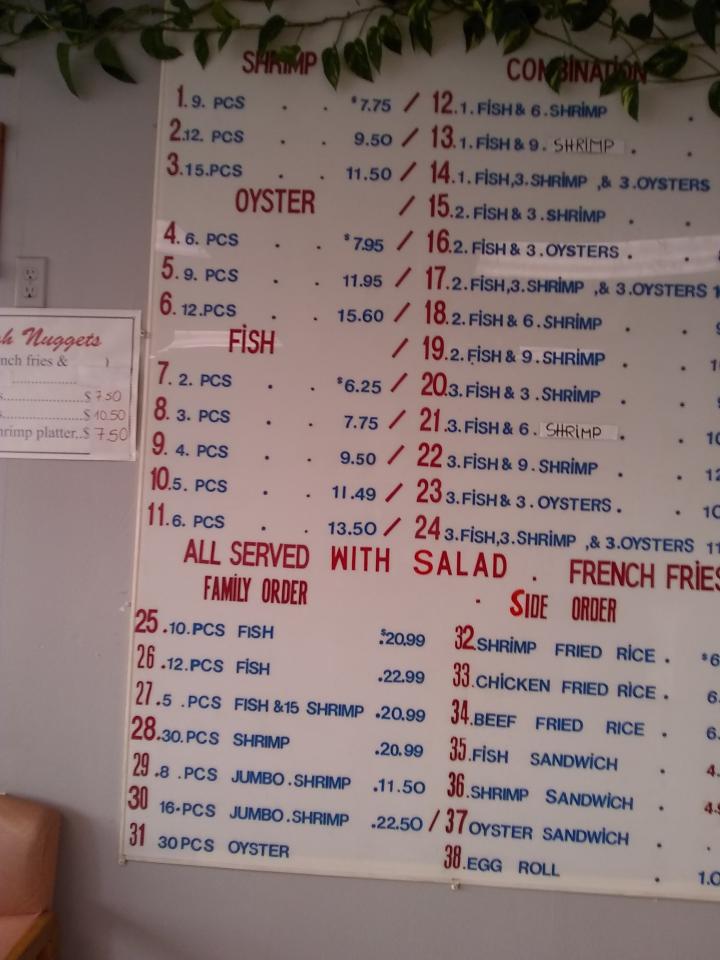 SHRIMP
1. 9. PCS . . $7.75 /
2. 12. PCS . . 9.50 /
3. 15. PCS . . 11.50 /
OYSTER /
4. 6. PCS . . $7.95 /
5. 9. PCS . . 11.95 /
6. 12. PCS . . 15.60 /
FİSH /
7. 2. PCS . . $6.25 /
8. 3. PCS . . 7.75 /
9. 4. PCS . . 9.50 /
10. 5. PCS . . 11.49 /
11. 6. PCS . . 13.50 /
COMBINATION
12. 1. FİSH & 6. SHRİMP .
13. 1. FİSH & 9. SHRIMP . .
14. 1. FİSH, 3. SHRİMP ,& 3. OYSTERS
15. 2. FİSH & 3. SHRİMP . .
16. 2. FİSH & 3. OYSTERS . .
17. 2. FİSH, 3. SHRİMP ,& 3. OYSTERS 1
18. 2. FİSH & 6. SHRİMP . . 9
19. 2. FİSH & 9. SHRİMP . . 1
20. 3. FİSH & 3. SHRİMP . .
21. 3. FİSH & 6. SHRIMP . . 10
22 3. FİSH & 9. SHRİMP . . 12
23 3. FİSH & 3. OYSTERS . . 10
24 3. FİSH, 3. SHRİMP ,& 3. OYSTERS 11
ALL SERVED WITH SALAD . FRENCH FRIES
FAMILY ORDER
25 .10. PCS FISH $20.99
26 .12. PCS FİSH .22.99
27 .5 .PCS FISH & 15 SHRIMP .20.99
28 .30. PCS SHRIMP .20.99
29 .8 .PCS JUMBO . SHRIMP .11.50
30 16. PCS JUMBO . SHRIMP .22.50 /
31 30 PCS OYSTER
. SIDE ORDER
32. SHRİMP FRIED RİCE . $6
33. CHİCKEN FRİED RİCE . 6.
34. BEEF FRİED RİCE . 6.
35. FİSH SANDWİCH . 4.
36. SHRIMP SANDWİCH . 4.
37 OYSTER SANDWİCH . .
38. EGG ROLL . 1.0
Nuggets
nch fries &
$ 7.50
$ 10.50
hrimp platter..$ 7.50